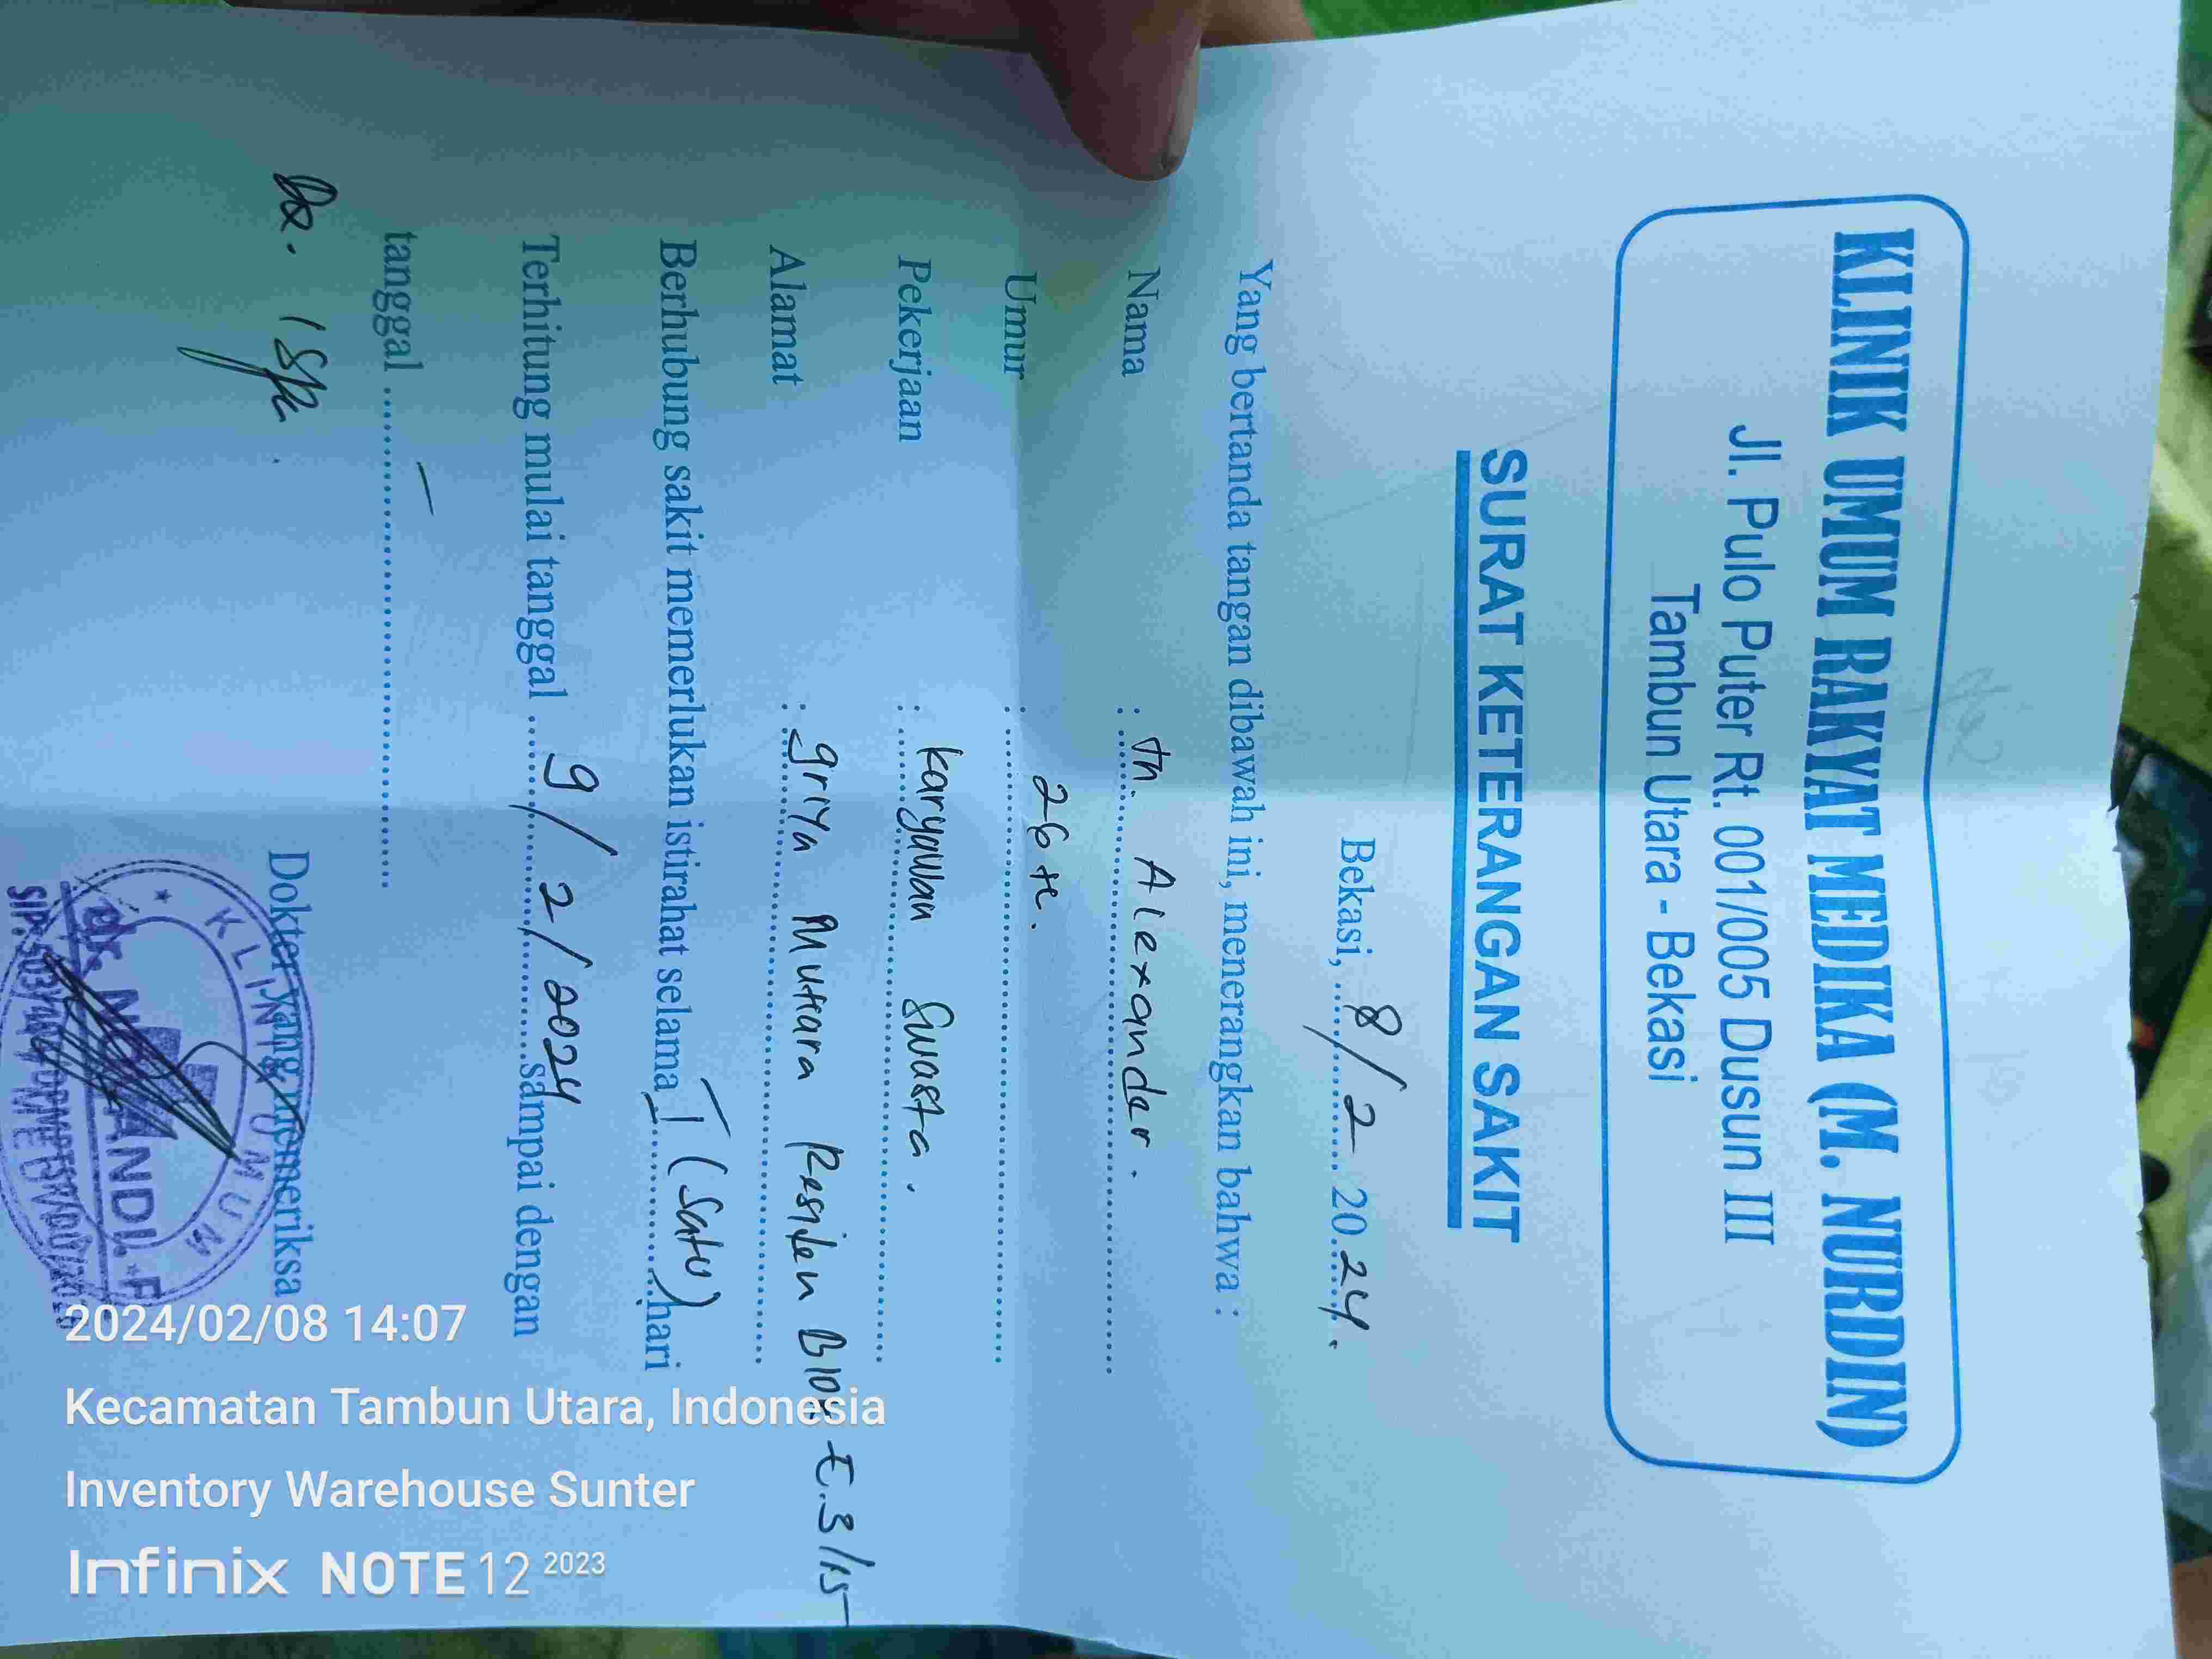 KLINIK UMUM RAKYAT MEDIKA (M. NURDIN)
Jl. Pulo Puter Rt. 001/005 Dusun III
Tambun Utara - Bekasi
SURAT KETERANGAN SAKIT
Bekasi, 8/2 2024.
Yang bertanda tangan dibawah ini, menerangkan bahwa :
Nama : tn. Alexander.
Umur : 26 th.
Pekerjaan : karyawan Swasta.
Alamat : griya Mutiara Residen Blok E.3/15
Berhubung sakit memerlukan istirahat selama 1 (Satu) hari
Terhitung mulai tanggal 9/2/2024 sampai dengan
tanggal -
Dokter yang memeriksa
KLINIK UMUM
2024/02/08 14:07
Kecamatan Tambun Utara, Indonesia
Inventory Warehouse Sunter
Infinix NOTE 12 2023